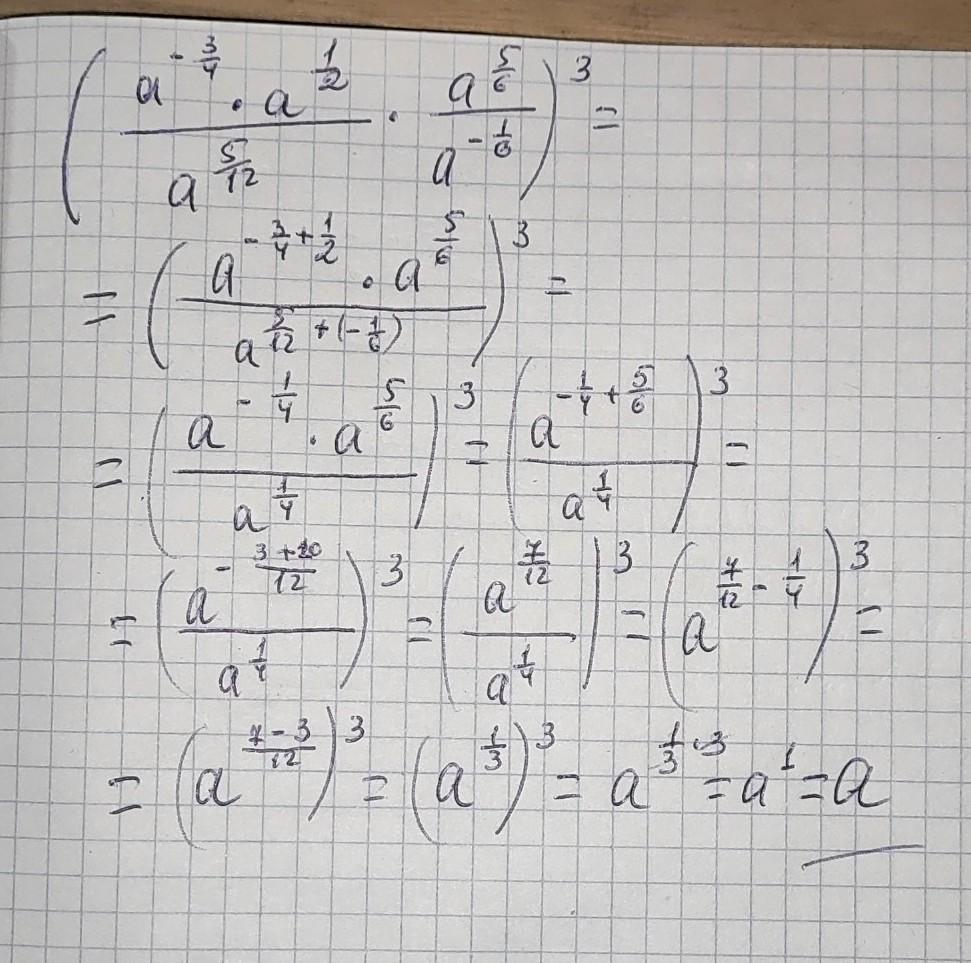 (a^(-3/4) · a^(1/2) / a^(5/12) · a^(5/6) / a^(-1/6))^3 =
= (a^(-3/4+1/2) · a^(5/6) / a^(5/12+(-1/6)))^3 =
= (a^(-1/4) · a^(5/6) / a^(1/4))^3 = (a^(-1/4+5/6) / a^(1/4))^3 =
= (a^(-(3+10)/12) / a^(1/4))^3 = (a^(7/12) / a^(1/4))^3 = (a^(7/12-1/4))^3 =
= (a^((7-3)/12))^3 = (a^(1/3))^3 = a^(1/3·3) = a^1 = a